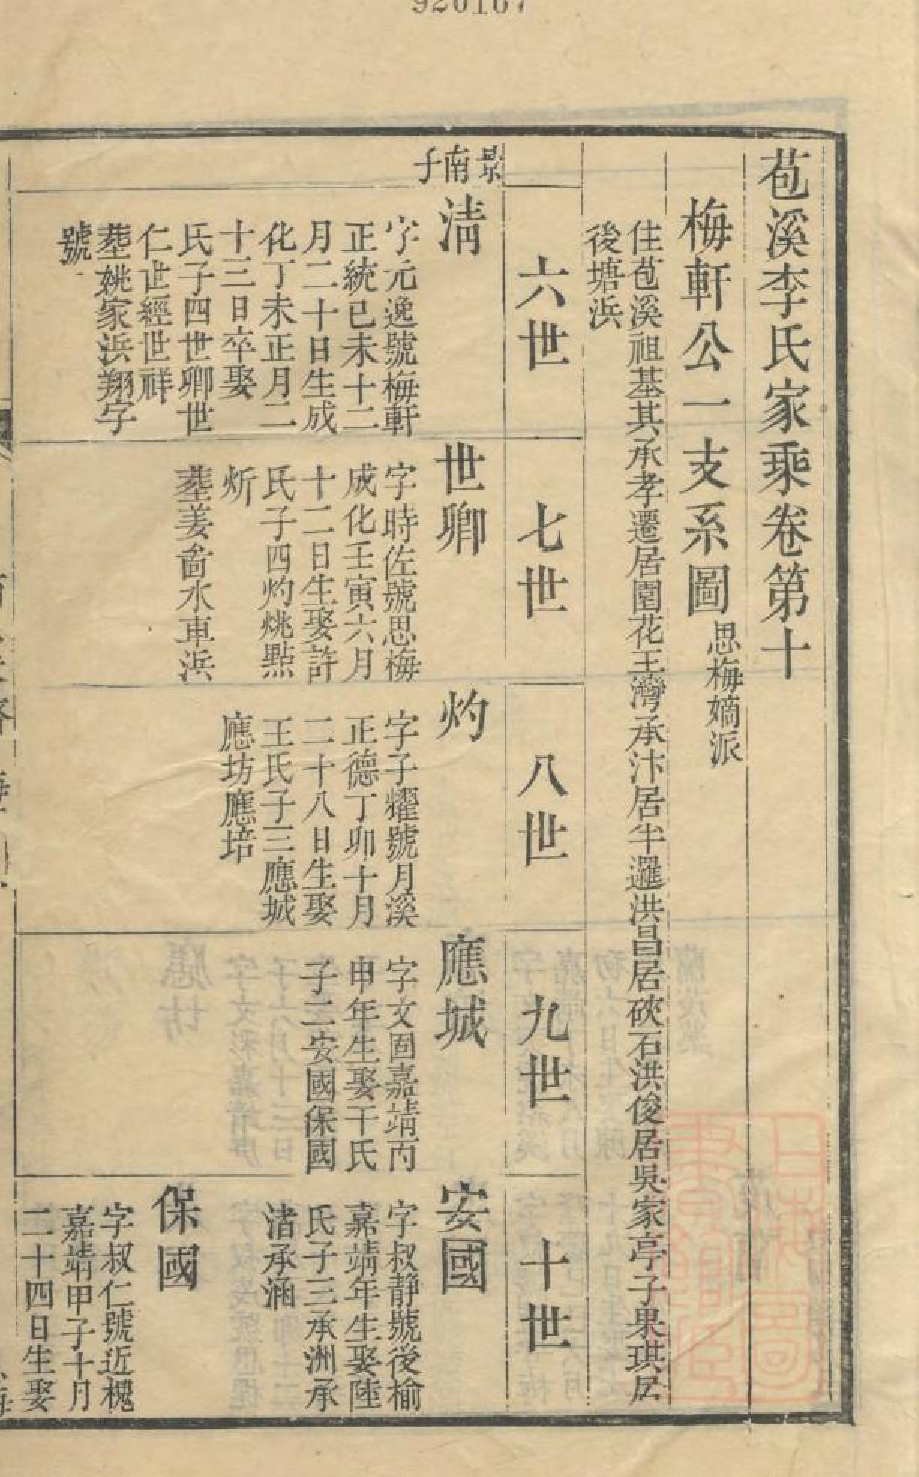 920107
苞溪李氏家乘卷第十
梅軒公一支系圖
思梅嫡派
住苞溪祖基其承孝遷居園花王灣承汴居半邏洪昌居硤石洪俊居吳家亭子果琪居
後塘浜
六世
七世
八世
九世
十世
景南子
清
字元逸號梅軒
正統已未十二
月二十日生成
化丁未正月二
十三日卒娶
氏子四世卿世
仁世經世祥
塟姚家浜翔字
號
世卿
字時佐號思梅
成化壬寅六月
十二日生娶許
氏子四灼烑㸃
炘
塟姜啇水車浜
灼
字子耀號月溪
正德丁卯十月
二十八日生娶
王氏子三應城
應坊應培
應城
字文固嘉靖丙
申年生娶干氏
子二安國保國
安國
字叔靜號後榆
嘉靖年生娶陸
氏子三承洲承
渚承涵
保國
字叔仁號近槐
嘉靖甲子十月
二十四日生娶